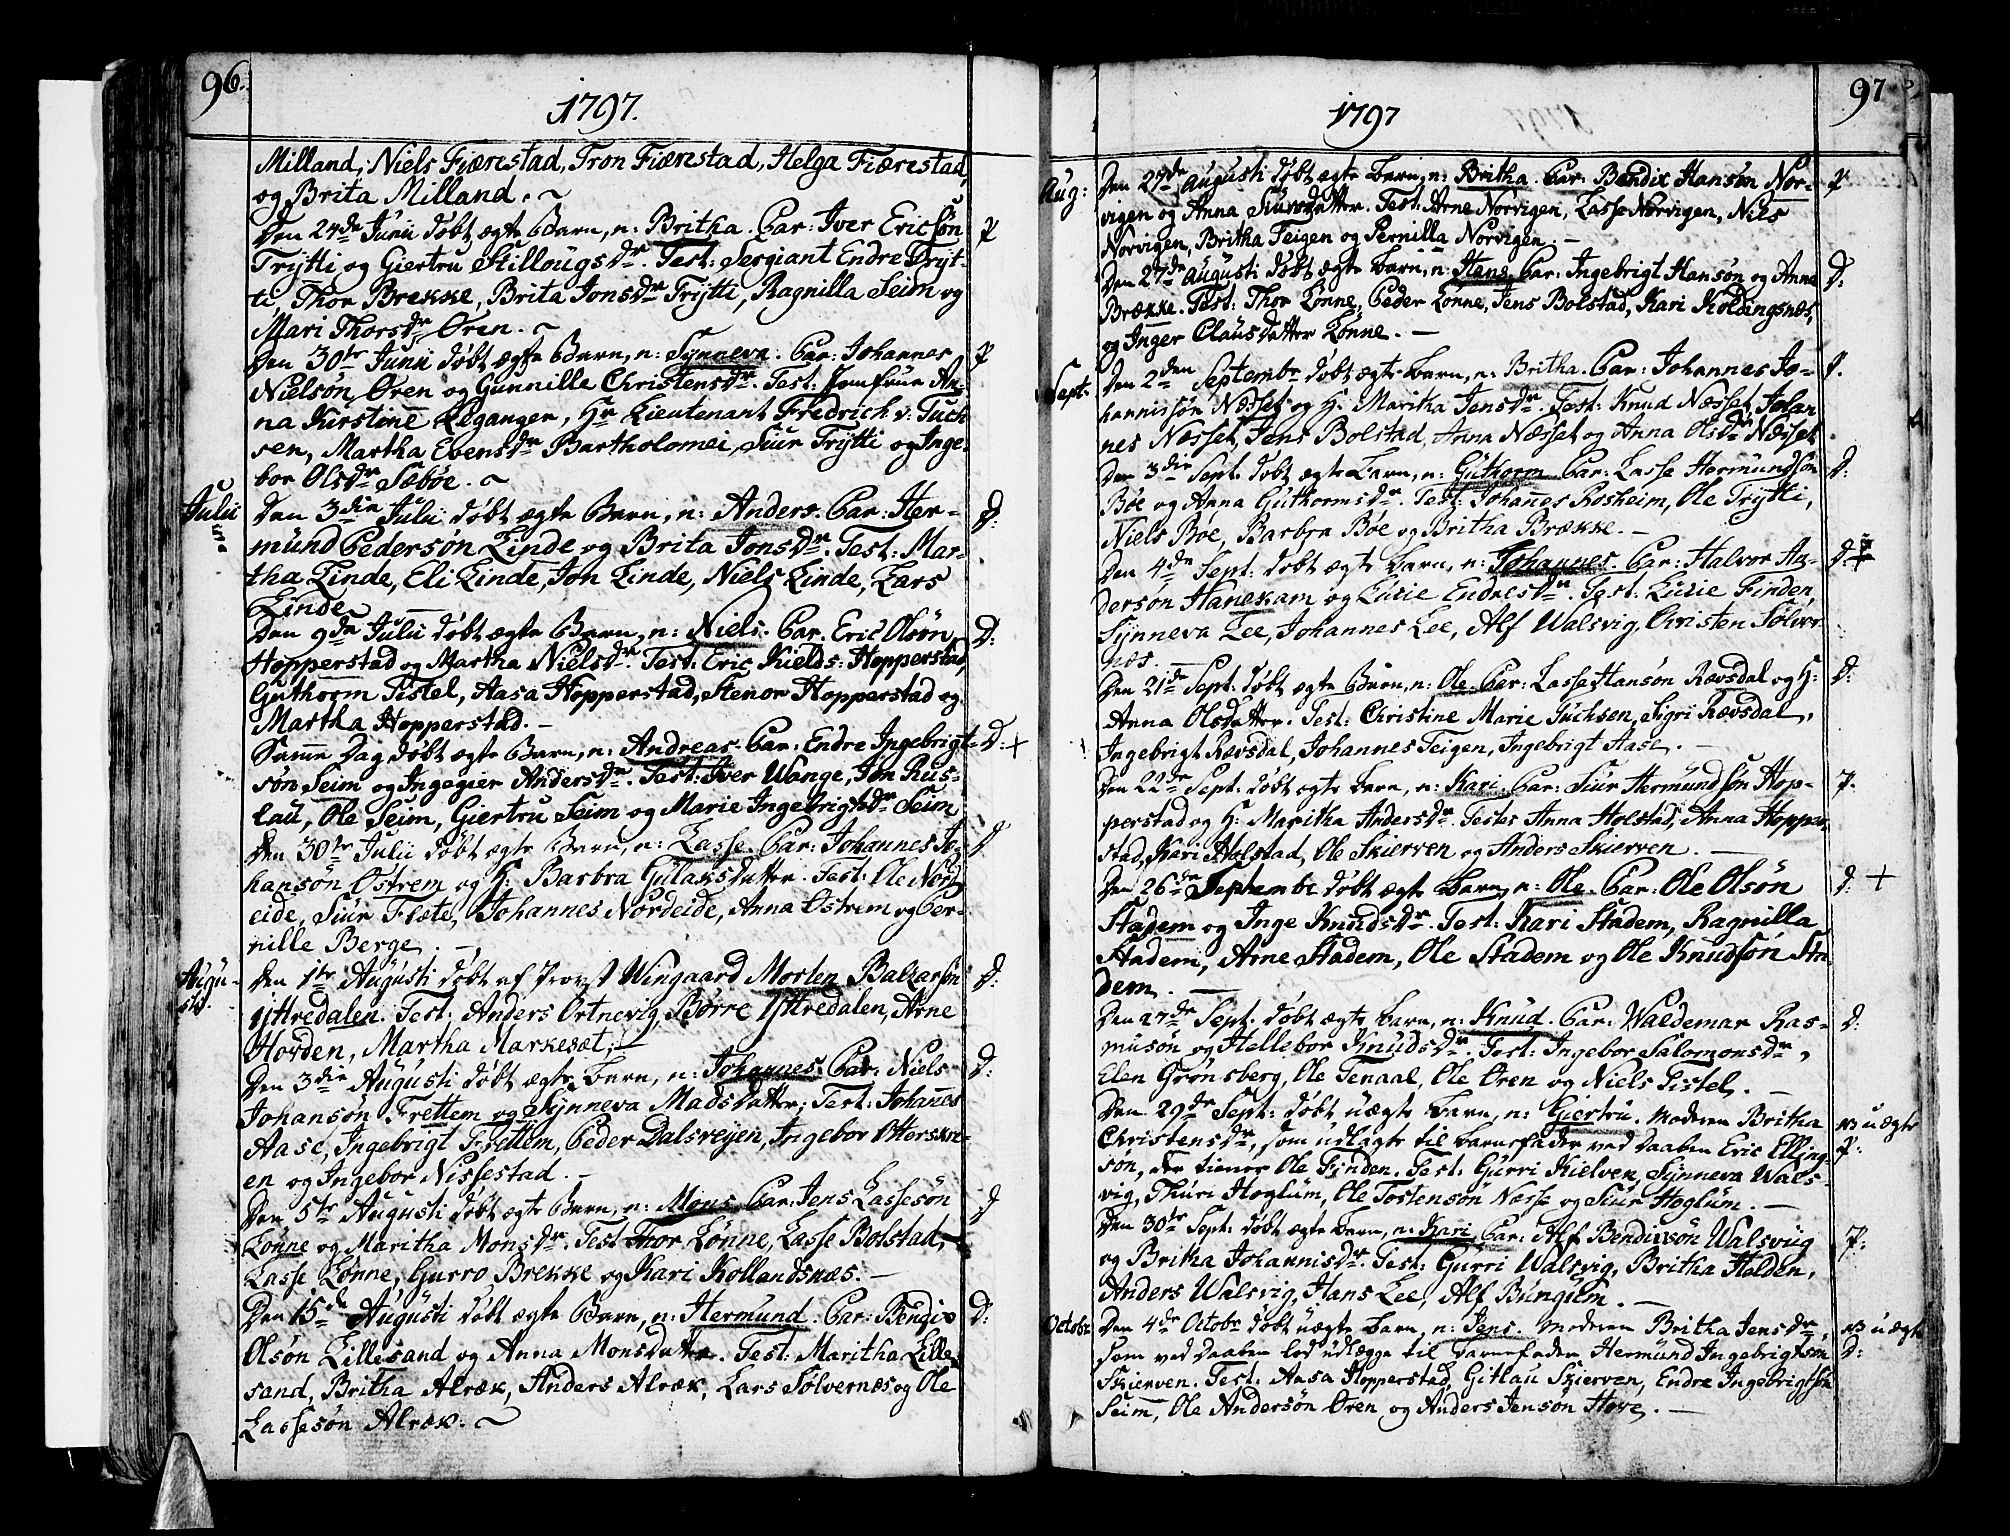 96.
1797.
Milland, Niels Fiærestad, Tron Fiærestad, Helga Fiærestad,
og Brita Milland. ~
Den 24de Junii døbt ægte Barn, n: Britha. Par: Iver Ericsøn
P
Trytti og Giertru Stillougsdr. Test: Sergiant Endre Tryt-
ti, Thor Brekke, Brita Jonsdr Trytti, Ragnilla Seim og
Mari Thorsdr Øren. ~
Den 30te Junii døbt ægte Barn, n: Synneva. Par: Johannes
P
Nielsøn Øren og Gunnille Christensdr. Test: Jomfrue An-
na Kirstine Leganger, Hr Lieutenant Fredrich v: Tuch
sen, Martha Evensdr Bartholomei, Siur Trytti og Inge-
bor Olsdr Sæbøe. ~
Julii
Den 3die Julii døbt ægte Barn, n: Anders. Par: Her-
D:
mund Pedersøn Linde og Brita Jonsdr. Test: Mar-
tha Linde, Eli Linde, Jon Linde, Niels Linde, Lars
Linde
Den 9de Julii døbt ægte Barn, n: Niels. Par. Eric Olsøn
D:
Hopperstad og Martha Nielsdr. Test: Eric Kields: Hopperstad,
Guthorm Tistel, Aasa Hopperstad, Stenor Hopperstad og
Martha Hopperstad. -
Samme Dag døbt ægte Barn, n: Andreas. Par: Endre Ingebrigt-
D: +
søn Seim og Ingegier Andersdr. Test: Iver Wange, Jon Rus-
lau, Ole Seim, Giertru Seim og Marie Ingebrigtsdr Seim
Den 30te Julii døbt ægte Barn, n: Lasse. Par: Johannes Jo-
D
hansøn Østrem og H: Barbra Gulaksdatter. Test: Ole Nord
eide, Siur Flæte, Johannes Nordeide, Anna Østrem og Per-
nille Berge. -
Augu-
sti.
Den 1te Augusti døbt af Provst Wingaard Morten Balzarsøn
D:
Yttredalen. Test: Anders Ortnevig, Børre Yttredalen, Arne
Horden, Martha Markesæt. -
Den 3die Augusti døbt ægte Barn, n: Johannes. Par: Niels
D:
Johansøn Frettem og Synneva Madsdatter; Test: Johannes
Aase, Ingebrigt Frettem, Peder Dalsveyen, Ingebor Otterskre-
en og Ingebor Nissestad. -
Den 5te Augusti døbt ægte Barn, n: Mons. Par: Jens Lassesøn
D
Lønne og Maritha Monsdr. Test Thor Lønne, Lasse Bolstad,
Lasse Lønne, Gurro Brekke og Kari Kollandsnæs. -
Den 15de Augusti døbt ægte Barn, n: Hermund. Par: Bendix
D:
Olsøn Lillesand og Anna Monsdatter. Test: Maritha Lille
sand, Britha Alræk, Anders Alræk, Lars Sølvernæs og Ole
Lassesøn Alræk. ~
97
1797
Aug:
Den 27de Augusti døbt ægte Barn, n: Britha. Par: Bendix Hansøn Nor-
P
vigen og Anna Siursdatter. Test: Arne Norvigen, Lasse Norvigen, Nils
Norvigen, Britha Teigen og Pernilla Norvigen. -
Den 27de Augusti døbt ægte Barn, n: Hans. Par: Ingebrigt Hansøn og Anna
D:
Brække. Test: Thor Lønne, Peder Lønne, Jens Bolstad, Kari Koldingsnæs,
og Inger Olausdatter Lønne. -
Sept:
Den 2den Septembr døbt ægte Barn, n: Britha. Par: Johannes Jo-
P.
hannissøn Næsset og H: Maritha Jensdr. Test: Knud Næsset, Johan
nes Næsset, Jens Bolstad, Anna Næsset og Anna Olsdr Næsset.
Den 3die Sept. døbt ægte Barn, n: Guthorm. Par: Lasse Hermundsøn
D:
Bøe og Anna Guthormsdr. Test: Johannes Rosheim, Ole Trytti,
Niels Bøe, Barbra Bøe og Britha Brække. -
Den 4de Sept: døbt ægte Barn, n: Johannes. Par: Halvor An-
D: +
dersøn Hanekam og Lucie Endresdr. Test. Lucie Finden,
Synneva Lee, Johannes Lee, Alf Walsvig, Christen Sølver
næs. -
Den 21de Sept. døbt ægte Barn, n: Ole. Par: Lasse Hansøn Rævsdal og H:
D:
Anna Olsdatter. Test: Christine Marie Tuchsen, Sigri Rævsdal,
Ingebrigt Rævsdal, Johannes Teigen, Ingebrigt Aase. -
Den 22de Sept. døbt ægte Barn, n: Kari. Par: Siur Hermundsøn Hop-
P.
perstad og H: Maritha Andersdr. Testes Anna Holstad, Anna Hopper-
stad, Kari Holstad, Ole Skierven og Anders Skierven. -
Den 26de Septembr døbt ægte Barn, n: Ole. Par: Ole Olsøn
D: +
Stadem og Inge Knudsdr. Test: Kari Stadem, Ragnilla
Stadem, Arne Stadem, Ole Stadem og Ole Knudsøn Sta-
dem. -
Den 27de Sept. døbt ægte Barn, n: Knud. Par: Waldemar Ras-
D:
musøn og Hellebor Knudsdr. Test: Ingebor Salomonsdr,
Elen Grønsberg, Ole Tenaal, Ole Øren og Niels Tistel. -
Den 29de Sept: døbt uægte Barn, n: Giertru. Moderen Britha
N3 uægte
P:
Christensdr, som udlagte til Barnefader ved Daaben Eric Elling-
søn, der tiener Ole Finden. Test: Gurri Kielven, Synneva Wals-
vig, Thuri Hoglum, Ole Tostensøn Næsse og Siur Hoglum. -
Den 30te Sept. døbt ægte Barn, n: Kari. Par: Alf Bendixsøn Walsvig
P:
og Britha Johannisdr. Test: Gurri Walsvig, Britha Holden,
Anders Walsvig, Hans Lee, Alf Bungum. -
Octobr
Den 4de Octobr døbt uægte Barn, n: Jens. Moderen Britha Jensdr,
N3 uægte
D:
som ved Daaben lod udlægge til Barnefader Hermund Ingebrigtsøn
Skierven. Test: Aasa Hopperstad, Gitlau Skierven, Endre Ingebrigtsøn
Seim, Ole Andersøn Øren og Anders Jensøn Hove. -